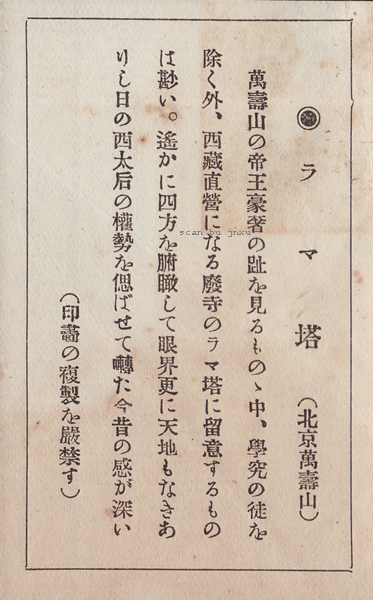 ◉ラマ塔(北京萬壽山)
萬壽山の帝王豪奢の趾を見るものゝ中、學究の徒を
除く外、西藏直營になる廢寺のラマ塔に留意するもの
は尠い。遙かに四方を腑瞰して眼界更に天地もなきあ
りし日の西太后の權勢を偲ばせて囀た今昔の感が深い
(印畵の複製を嚴禁す)
scan by jnxu